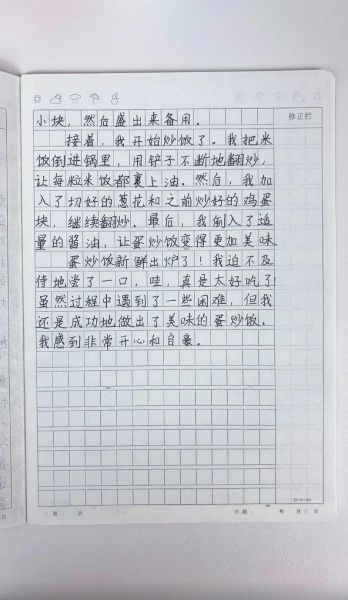 修正栏
小块，然后盛出来备用。
接着，我开始炒饭了。我把米
饭倒进锅里，用铲子不断地翻炒，
让每粒米饭都裹上油。然后，我加
入了切好的葱花和之前炒好的鸡蛋
块，继续翻炒。最后，我倒入了适
量的酱油，让蛋炒饭变得更加美味
蛋炒饭新鲜出炉了！我迫不及
待地尝了一口，哇，真是太好吃了！
虽然过程中遇到了一些困难，但我
还是成功地做出了美味的蛋炒饭，
我感到非常开心和自豪。
第 页 日期 年 月 日